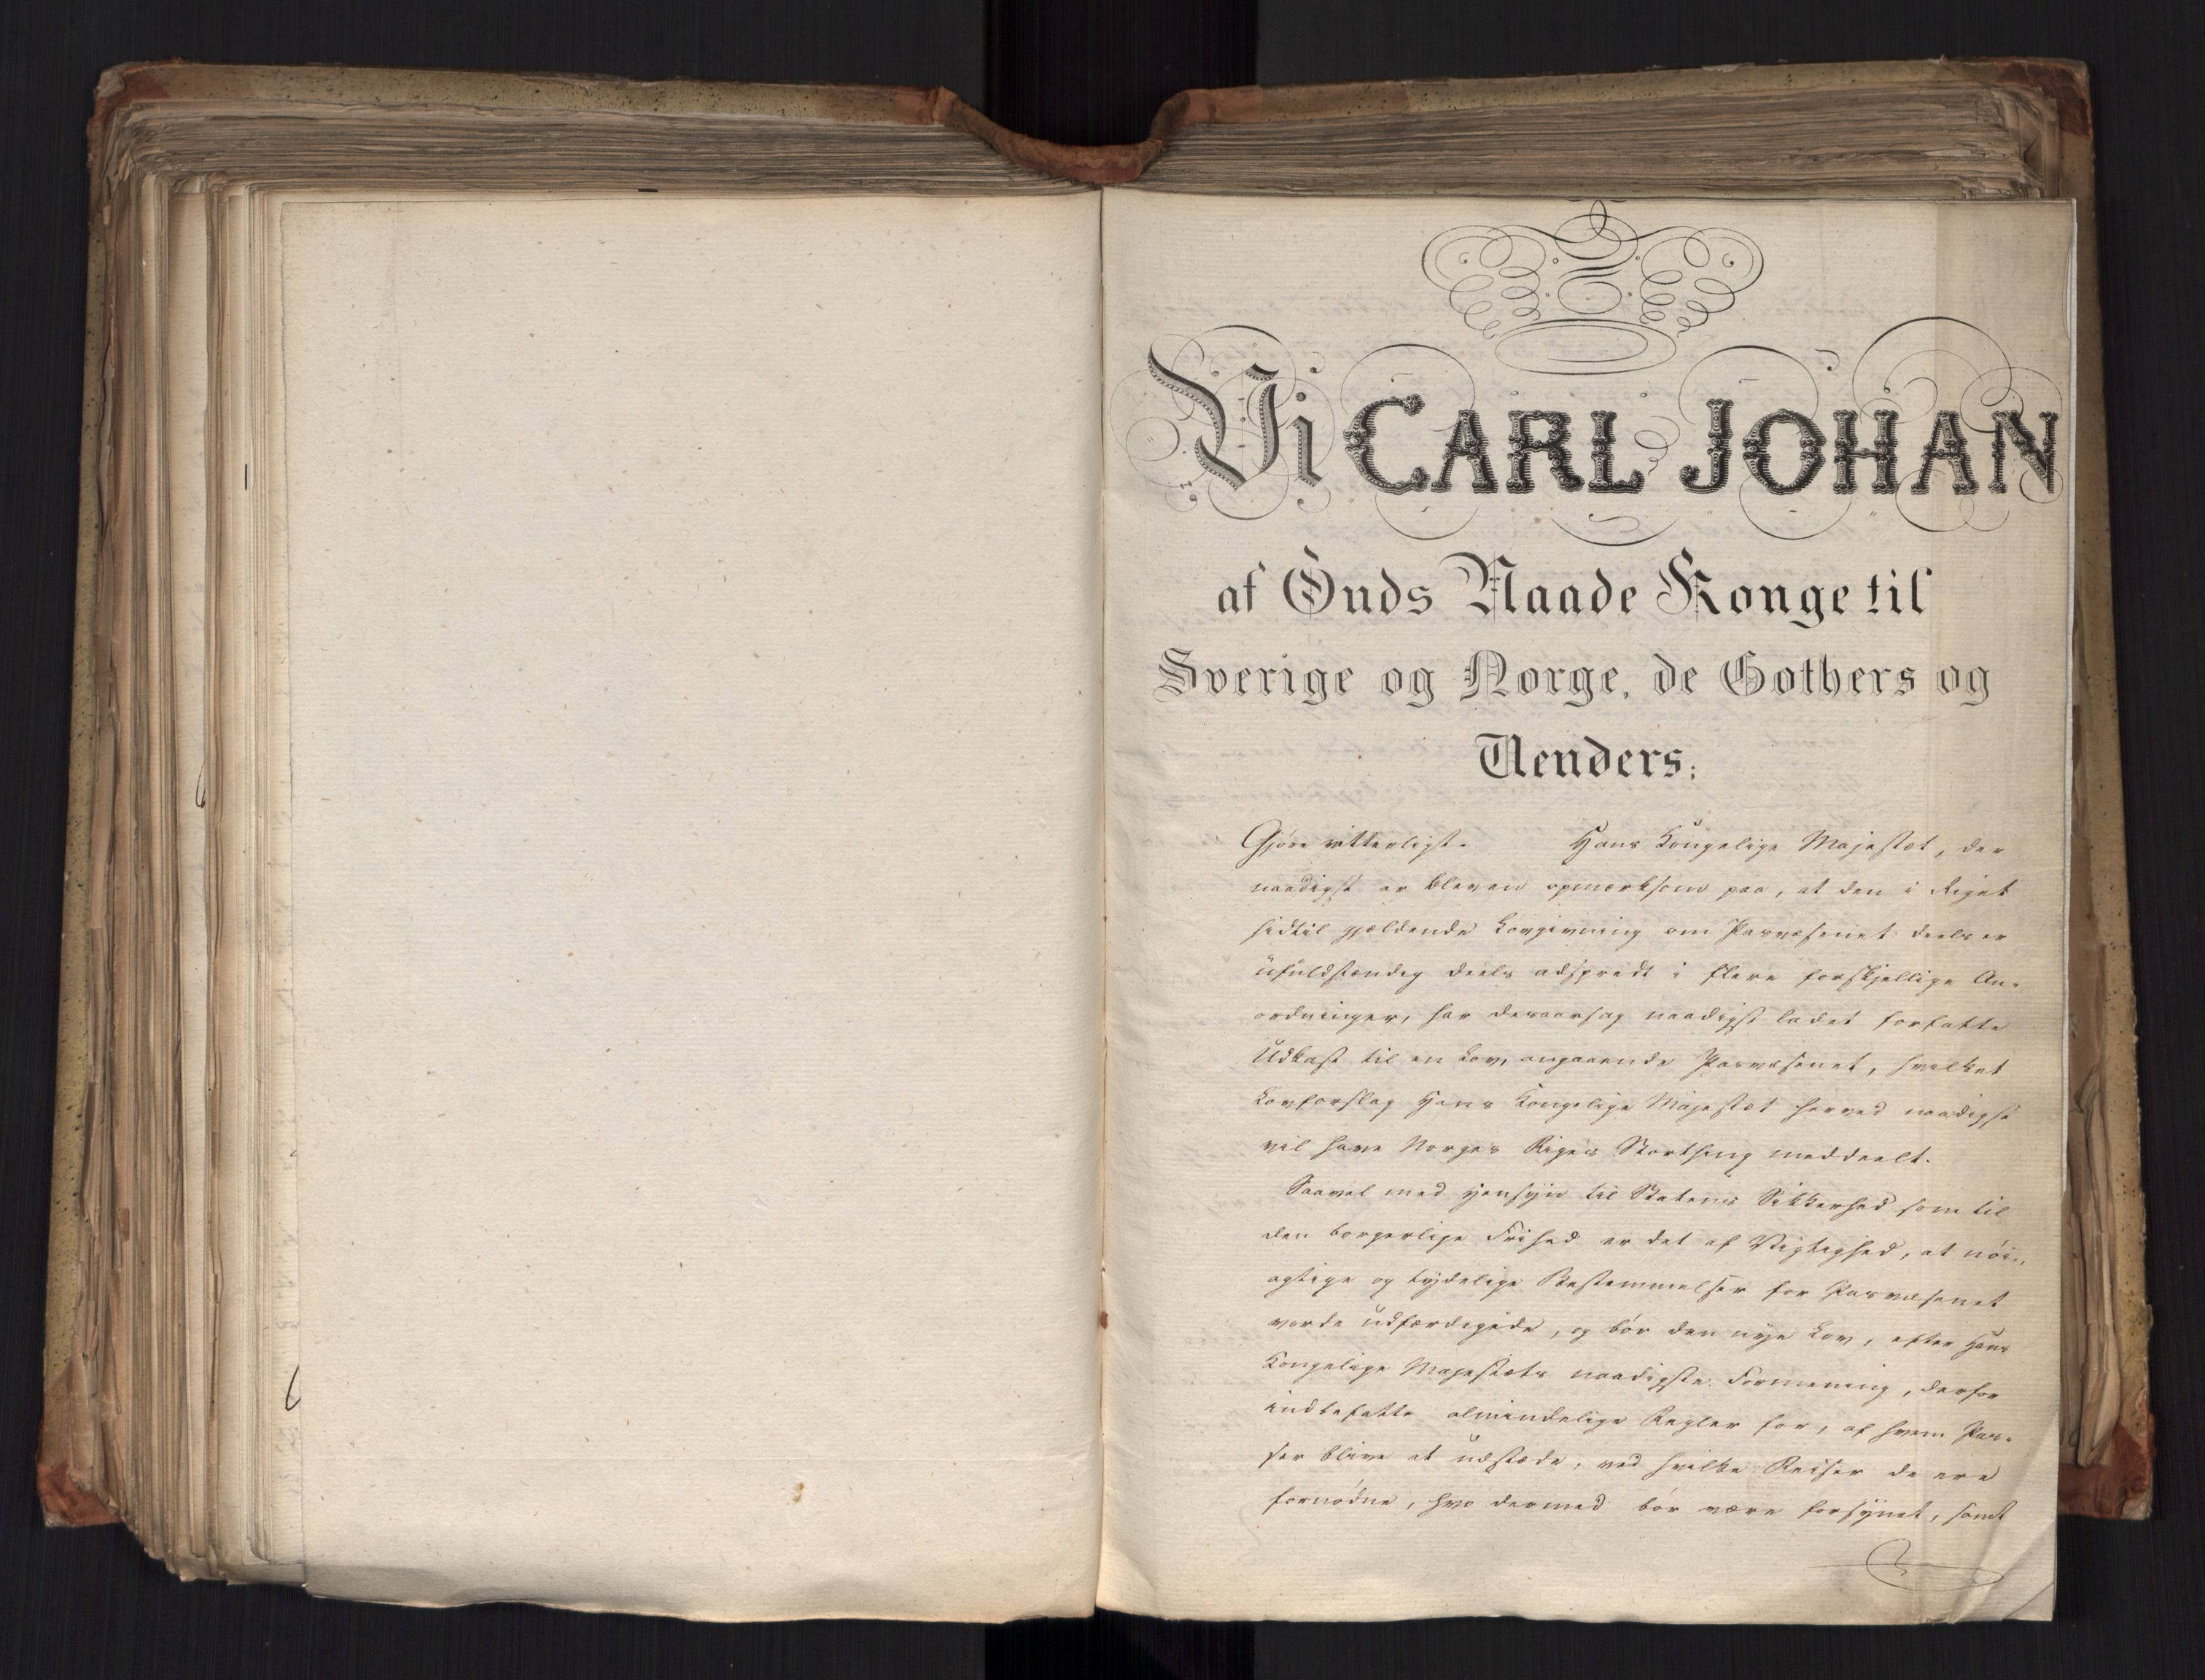 Vi CARL JOHAN
af Guds Naade Konge til
Sverige og Norge, de Gothers og
Venders;
Gjøre vitterligt. Hans Kongelige Majestæt, der
naadigst er bleven opmærksom paa, at den i Riget
hidtil gjældende Lovgivning om Pasvæsenet deels er
ufuldstændig deels adspredt i flere forskjellige An-
ordninger, har desaarsag naadigst ladet forfatte
Udkast til en Lov, angaaende Pasvæsenet, hvilket
Lovforslag Hans Kongelige Majestæt herved naadigst
vil have Norges Riges Storthing meddeelt.
Saavel med Hensyn til Statens Sikkerhed som til
den borgerlige Frihed er det af Vigtighed, at nöi-
agtige og tydelige Bestemmelser for Pasvæsenet
vorde udfærdigede, og bör den nye Lov, efter Hans
Kongelige Majestæts naadigste Formening, derfor
indbefatte almindelige Regler for, af hvem Pas-
ser blive at udstæde, ved hvilke Reiser de ere
fornödne, hvo dermed bör være forsynet, samt